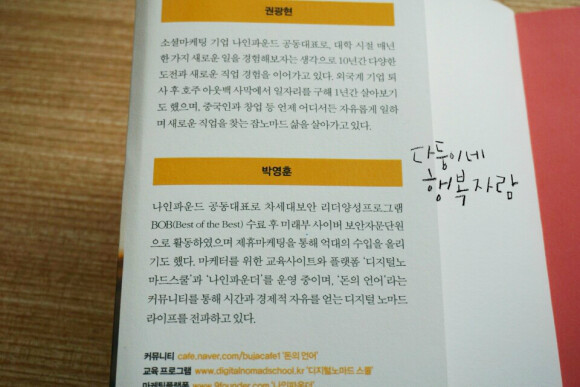 권광현
소셜마케팅 기업 나인파운드 공동대표로, 대학 시절 매년
한 가지 새로운 일을 경험해보자는 생각으로 10년간 다양한
도전과 새로운 직업 경험을 이어가고 있다. 외국계 기업 퇴
사 후 호주 아웃백 사막에서 일자리를 구해 1년간 살아보기
도 했으며, 중국인과 창업 등 언제 어디서든 자유롭게 일하
며 새로운 직업을 찾는 잡노마드 삶을 살아가고 있다.
박영훈
나인파운드 공동대표로 차세대보안 리더양성프로그램
BOB(Best of the Best) 수료 후 미래부 사이버 보안자문단원
으로 활동하였으며 제휴마케팅을 통해 억대의 수입을 올리
기도 했다. 마케터를 위한 교육사이트와 플랫폼 '디지털노
마드스쿨'과 '나인파운더'를 운영 중이며, '돈의 언어'라는
커뮤니티를 통해 시간과 경제적 자유를 얻는 디지털 노마드
라이프를 전파하고 있다.
커뮤니티 cafe.naver.com/bujacafe1 '돈의 언어'
교육 프로그램 www.digitalnomadschool.kr '디지털노마드 스쿨'
마케팅플랫폼 www.9founder.com '나인파운더'
다둥이네
행복자람